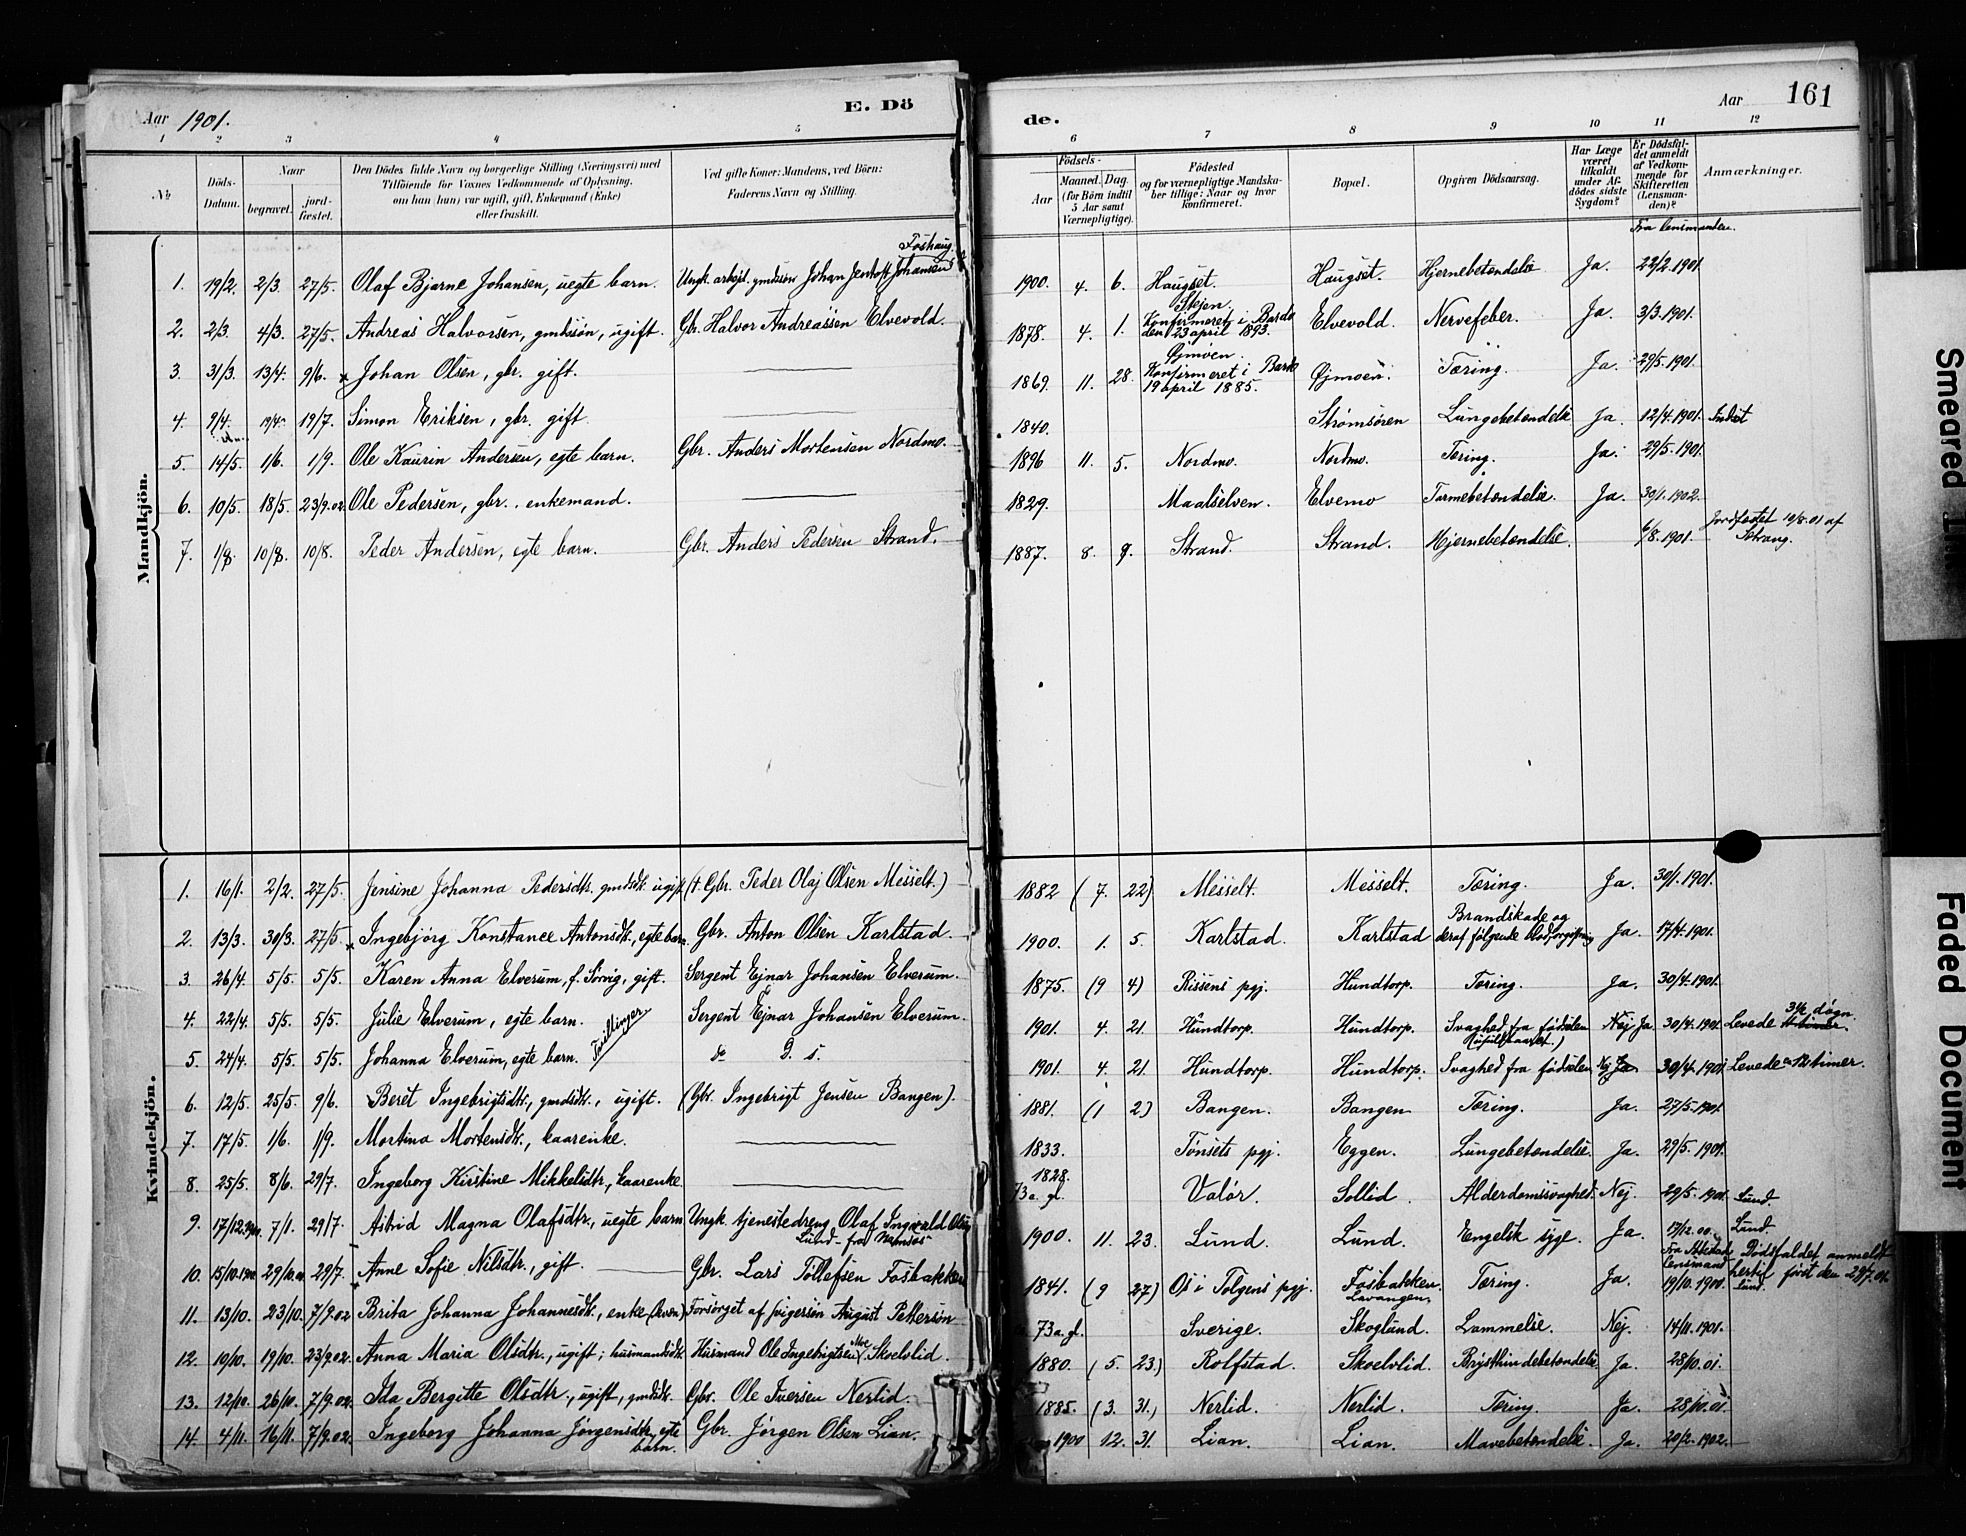 Aar 1901.
E. Dö
1 2 3 4 5
№
Döds-Datum.
Naar
begravet.
jord-fæstet.
Den Dödes fulde Navn og borgerlige Stilling (Næringsvei) med
Tilföiende for Voxnes Vedkommende af Oplysning,
om han (hun) var ugift, gift, Enkemand (Enke)
eller fraskilt.
Ved gifte Koner: Mandens, ved Börn:
Faderens Navn og Stilling.
Mandkjön.
1. 19/2. 2/3. 27/5. Olaf Bjarne Johansen, uegte barn. Ungk. arbejd. gmdssøn Johan Jentoft Johansen Foshaug.
2. 2/3. 4/3. 27/5. Andreas Halvorsen, gmdssøn, ugift. Gbr. Halvor Andreassen Elvevold.
3. 31/3. 13/4. 9/6. x Johan Olsen, gbr. gift.
4. 9/4. 19/4. 19/7. Simon Eriksen, gbr. gift
5. 14/5. 1/6. 1/9. Ole Kaurin Andersen, egte barn. Gbr. Anders Mortensen Nordmo.
6. 10/5. 18/5. 23/9.02. Ole Pedersen, gbr., enkemand.
7. 1/8. 10/8. 10/8. Peder Andersen, egte barn. Gbr. Anders Pedersen Strand.
Kvindekjön.
1. 16/1. 2/2. 27/5. Jensine Johanna Pedersdtr. gmdsdtr. ugift. († Gbr. Peder Olaj Olsen Messelt.)
2. 13/3. 30/3. 27/5. x Ingebjörg Konstance Antonsdtr., egte barn. Gbr. Anton Olsen Karlstad.
3. 26/4. 5/5. 5/5. Karen Anna Elverum, f. Sivig, gift. Sergent Ejnar Johansen Elverum.
4. 22/4. 5/5. 5/5. Julie Elverum, egte barn. Tvillinger Sergent Ejnar Johansen Elverum.
5. 24/4. 5/5. 5/5. Johanna Elverum, egte barn. do D. s.
6. 12/5. 25/5. 9/6. Beret Ingebrigtsdtr., gmdsdtr., ugift. (Gbr. Ingebrigt Jensen Bangen).
7. 17/5. 1/6. 1/9. Martina Mortensdtr., kaarenke.
8. 25/5. 8/6. 29/7. Ingeborg Kirstine Mikkelsdtr., kaarenke
9. 17/12.1900. 7/1. 29/7. Astrid Magna Olafsdtr., uegte barn. Ungk. tjenestedreng Olaf Ingvald Olsen
Lund - fra Namsos -
10. 15/10.1900 29/10.00. 29/7. Anne Sofie Nilsdtr., gift. Gbr. Lars Tollefsen Fosbakken
11. 13/10. 23/10. 7/9.02 Brita Johanna Johannesdtr., enke (kvæn) Forsørget af svigersøn August Pettersøn
12. 10/10. 19/10. 23/9.02. Anna Maria Olsdtr., ugift; husmandsdtr. Husmand Ole Ingebrigtsen Moe, Skoelvlid.
13. 12/10. 26/10. 7/9.02. Ida Bergitte Olsdtr., ugift, gmdsdtr. Gbr. Ole Iversen Nerlid.
14. 4/11. 16/11. 7/9.02. Ingeborg Johanna Jørgensdtr., egte
barn. Gbr. Jørgen Olsen Lian.
de.
Aar 161
6 7 8 9 10 11 12
Födsels-
Aar
Maaned. Dag.
(for Börn indtil
5 Aar samt
Værnepligtige).
Födested
og for værnepligtige Mandska-
ber tillige: Naar og hvor
konfirmeret.
Bopæl.
Opgiven Dödsaarsag.
Har Læge
været
tilkaldt
under Af-
dödes sidste
Sygdom?
Er Dödsfal-
det anmeldt
af Vedkom-
mende for
Skifteretten
(Lensman-
den)?
Anmærkninger.
Fra lensmanden.
1900. 4. 6. Haugset. Haugset. Hjernebetændelse Ja. 22/2.1901.
1878. 4. 1. Stejen.
Konfirmeret i Bardo
den 23 april 1893. Elvevold. Nervefeber. Ja. 3/3.1901.
1869. 11. 28. Øjmoen.
Konfirmeret i Bardo
19 april 1885. Øjmoen. Tæring. Ja. 29/5.1901.
1840. Strømsören Lungebetændelse Ja. 12/4.1901. Indset
1896 11. 5. Nordmo. Nordmo. Tæring. Ja. 29/5.1901.
1829. Maalselven. Elvemo Tarmebetændelse. Ja. 30/1.1902.
1887. 8. 9. Strand. Strand. Hjernebetændelse. 6/8.1901. Jordfæstet 10/8.01 af
1882 (7. 22) Messelt. Messelt. Tæring. Ja. 30/1.1901.
1900. 1. 5. Karlstad. Karlstad Brandskade og
deraf følgende blodforgiftning Ja. 17/4.1901.
1875. (9 4) Rissens pgj. Hundtorp. Tæring. Ja. 30/4.1901.
1901. 4. 21. Hundtorp. Hundtorp. Svaghed fra fødselen Nej Ja 30/4.1901. Levede 3½ døgn
1901. 4. 21. Hundtorp. Hundtorp. Svaghed fra fødselen Nej Ja. 30/4.1901 Levede timer.
1881. (1 2) Bangen. Bangen Tæring. Ja. 27/5.1901.
1833. Tønsets pgj. Eggen. Lungebetændelse. Ja. 29/5.1901.
1828.
73 a. gl. Valør. Sollid. Alderdomssvaghed. Nej. 29/5.1901. Lund.
1900. 11. 23. Lund. Lund. Engelsk syge. Ja. 17/12.00. Lund.
1841. (9 27) Os i Tolgens pgj. Fosbakken.
Lavangen. Tæring. Ja. lensmand
19/10.1900. Dødsfaldet anmeldt
hertil først den 29/7.01.
Lund.
73 a. gl. Sverige. Skoglund. Lammelse. Nej. 14/11.1901.
1880. (5. 23) Rolfstad. Skoelvlid. Brysthindebetændelse Ja. 28/10.01.
1885. (3. 31.) Nerlid. Nerlid. Tæring. Ja. 28/10.01.
1900 12. 31. Lian. Lian. Mavebetændelse. Ja. 20/2.1902.
Smeared
Faded Document